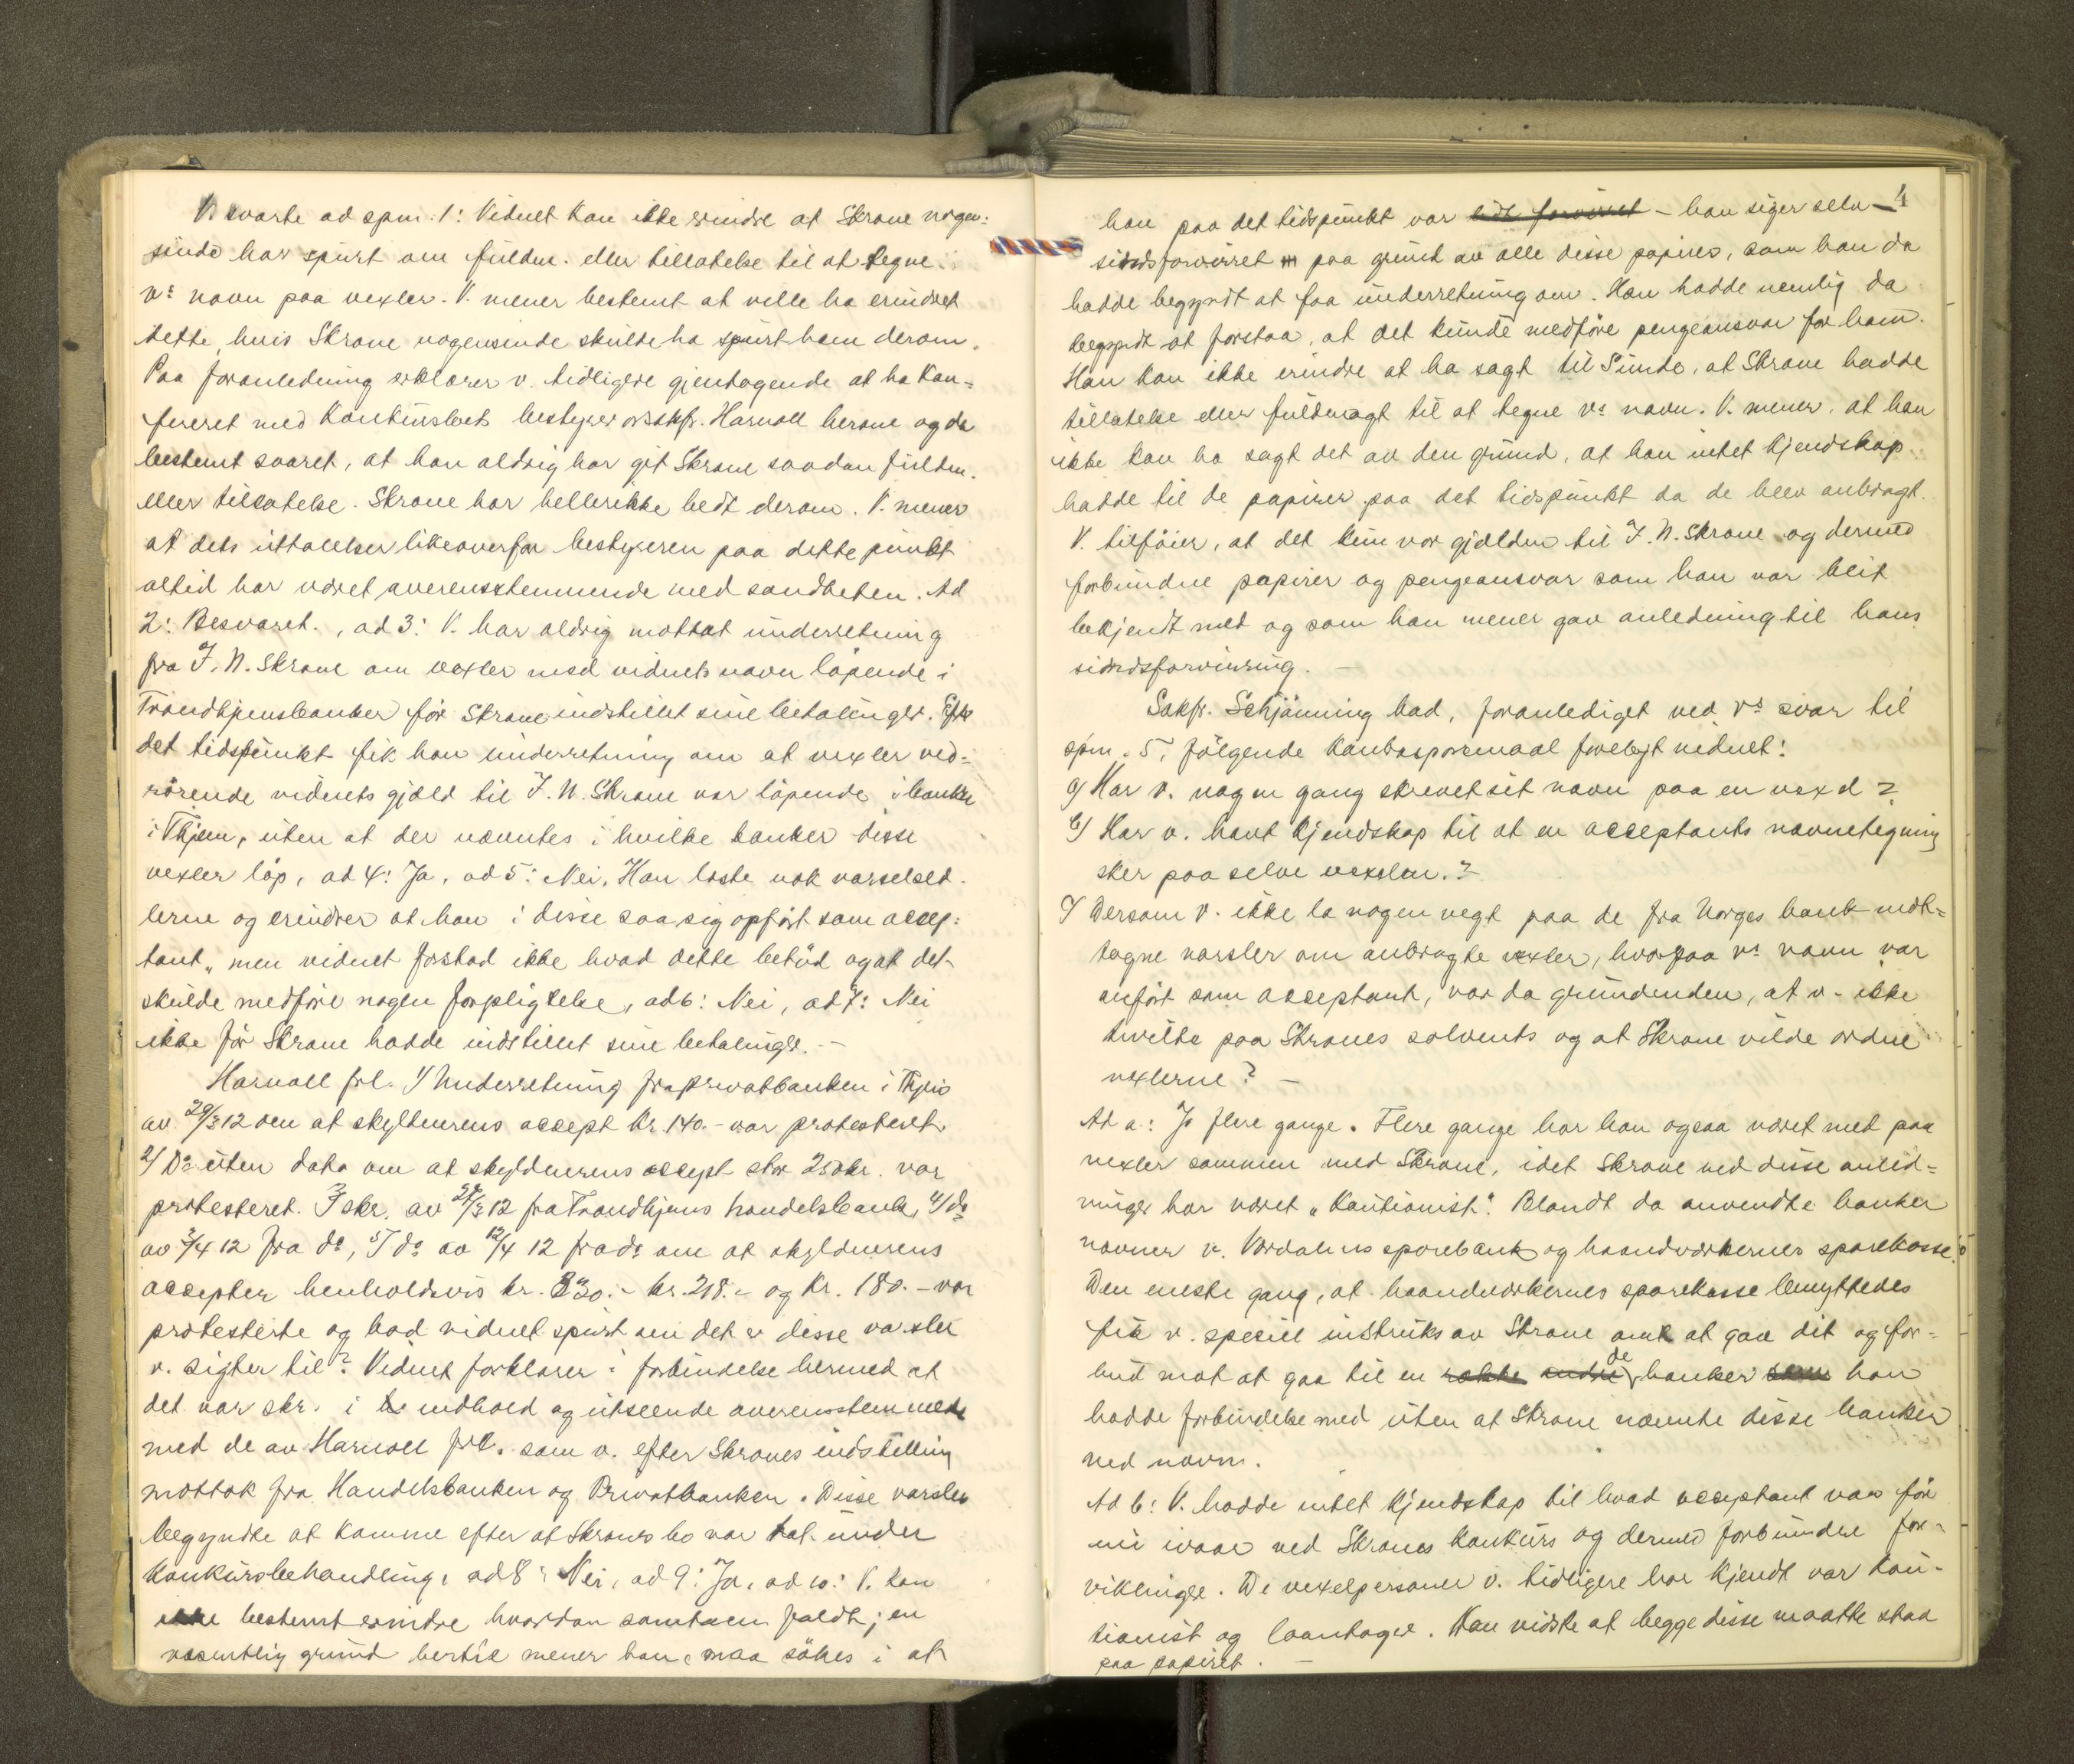 V. svarte ad spm. 1: Vidnet kan ikke erindre at Skrove nogen-
sinde har spurt om fuldm. eller tillatelse til at tegne
vs navn paa vexler. V. mener bestemt at ville ha erindret
dette, hvis Skrove nogensinde skulde ha spurt ham derom.
Paa foranledning erklærer v. tidligere gjentagende at ha kon-
fereret med konkursboets bestyrer orsakfr. Harvoll herom og da
bestemt svaret, at han aldrig har git Skrove saadan fuldm.
eller tillatelse. Skrove har hellerikke bedt derom. V. mener
at dets uttalelser likeoverfor bestyreren paa dette punkt
altid har været overensstemmende med sandheten. Ad
2: Besvaret., ad 3: V. har aldrig mottat underretning
fra J. N. Skrove om vexler med vidnets navn löpende i
Trondhjemsbanker för Skrove indstillet sine betalinger. Efter
det tidspunkt fik han underretning om at vexler ved-
rörende vidnets gjæld til J. N. Skrove var löpende i banker
i Thjem, uten at der nævntes i hvilke banker disse
vexler löp, ad 4: Ja, ad 5: Nei, Han læste nok varselsed-
lerne og erindrer at han i disse saa sig opfört som accep-
tant, men vidnet forstod ikke hvad dette betöd og at det
skulde medföre nogen forpligtelse, ad 6: Nei, ad 7: Nei
ikke för Skrove hadde indstillet sine betalinger. -
Harvoll frl. 1/ Underretning fra Privatbanken i Thjem
av 29/3 12 om at skyldnerens accept kr. 140.- var protesteret.
2/ Do uten data om at skyldnerens accept stor 250 kr. var
protesteret. 3 skr. av 29/3 12 fra Trondhjems handelsbank, 4/ do
av 3/4 12 fra do, 5/ do av 12/4 12 fra do om at skyldnerens
accepter henholdsvis kr. 830.- kr. 218.- og kr. 180.- var
protesterte og bad vidnet spurt om det er disse varsler
v. sigter til? Vidnet forklarer i forbindelse hermed at
det var skr. i indhold og utseende overensstemmende
med de av Harvoll frl. som v. efter Skroves indstilling
mottok fra Handelsbanken og Privatbanken. Disse varsler
begyndte at komme efter at Skroves bo var tat under
konkursbehandling, ad 8: Nei, ad 9: Ja, ad 10: V. kan
ikke bestemt erindre hvordan samtalen faldt; en
væsentlig grund hertil mener han maa sökes i at
4
han paa det tidspunkt var lidt forvirret - han siger selv -
sindsforvirret paa grund av alle disse papirer, som han da
hadde begyndt at faa underretning om. Han hadde nemlig da
begyndt at forstaa, at det kunde medföre pengeansvar for ham.
Han kan ikke erindre at ha sagt til Sunde, at Skrove hadde
tillatelse eller fuldmagt til at tegne vs navn. V. mener, at han
ikke kan ha sagt det av den grund, at han intet kjendskap
hadde til de papirer paa det tidspunkt da de blev anbragt.
V. tilföier, at det kun var gjælden til J. N. Skrove og dermed
forbundne papirer og pengeansvar som han var blit
bekjendt med og som han mener gav anledning til hans
sindsforvirring. -
Sakfr. Schjönning bad, foranlediget ved vs svar til
spm. 5, fölgende kontraspörsmaal forelagt vidnet:
a/ Har v. nogen gang skrevet sit navn paa en vexel?
b/ Har v. havt kjendskap til at en acceptants navnetegning
sker paa selve vexelen.?
c/ Dersom v. ikke la nogen vegt paa de fra Norges bank mot-
tagne varsler om anbragte vexler, hvorpaa vs navn var
anfört som acceptant, var da grunden den, at v. ikke
tvilte paa Skroves solvents og at Skrove vilde ordne
vexlerne? -
Ad a: Ja flere gange. Flere gange har han ogsaa været med paa
vexler sammen med Skrove, idet Skrove ved disse anled-
ninger har været "kautionist". Blandt da anvendte banker
nævner v. Værdalens sparebank og haandværkernes sparekasse.
Den eneste gang, at haandverkernes sparekasse benyttedes
fik v. speciel instruks av Skrove om at gaa dit og for-
bud mot at gaa til en række andre de banker som han
hadde forbindelse med uten at Skrove nævnte disse banker
ved navn.
Ad b: V. hadde intet kjendskap til hvad acceptant var för
nu ivaar ved Skroves konkurs og dermed forbundne for-
viklinger. De vexelpersoner v. tidligere har kjendt var kau-
tionist og laantager. Han vidste at begge disse maatte staa
paa papiret. -